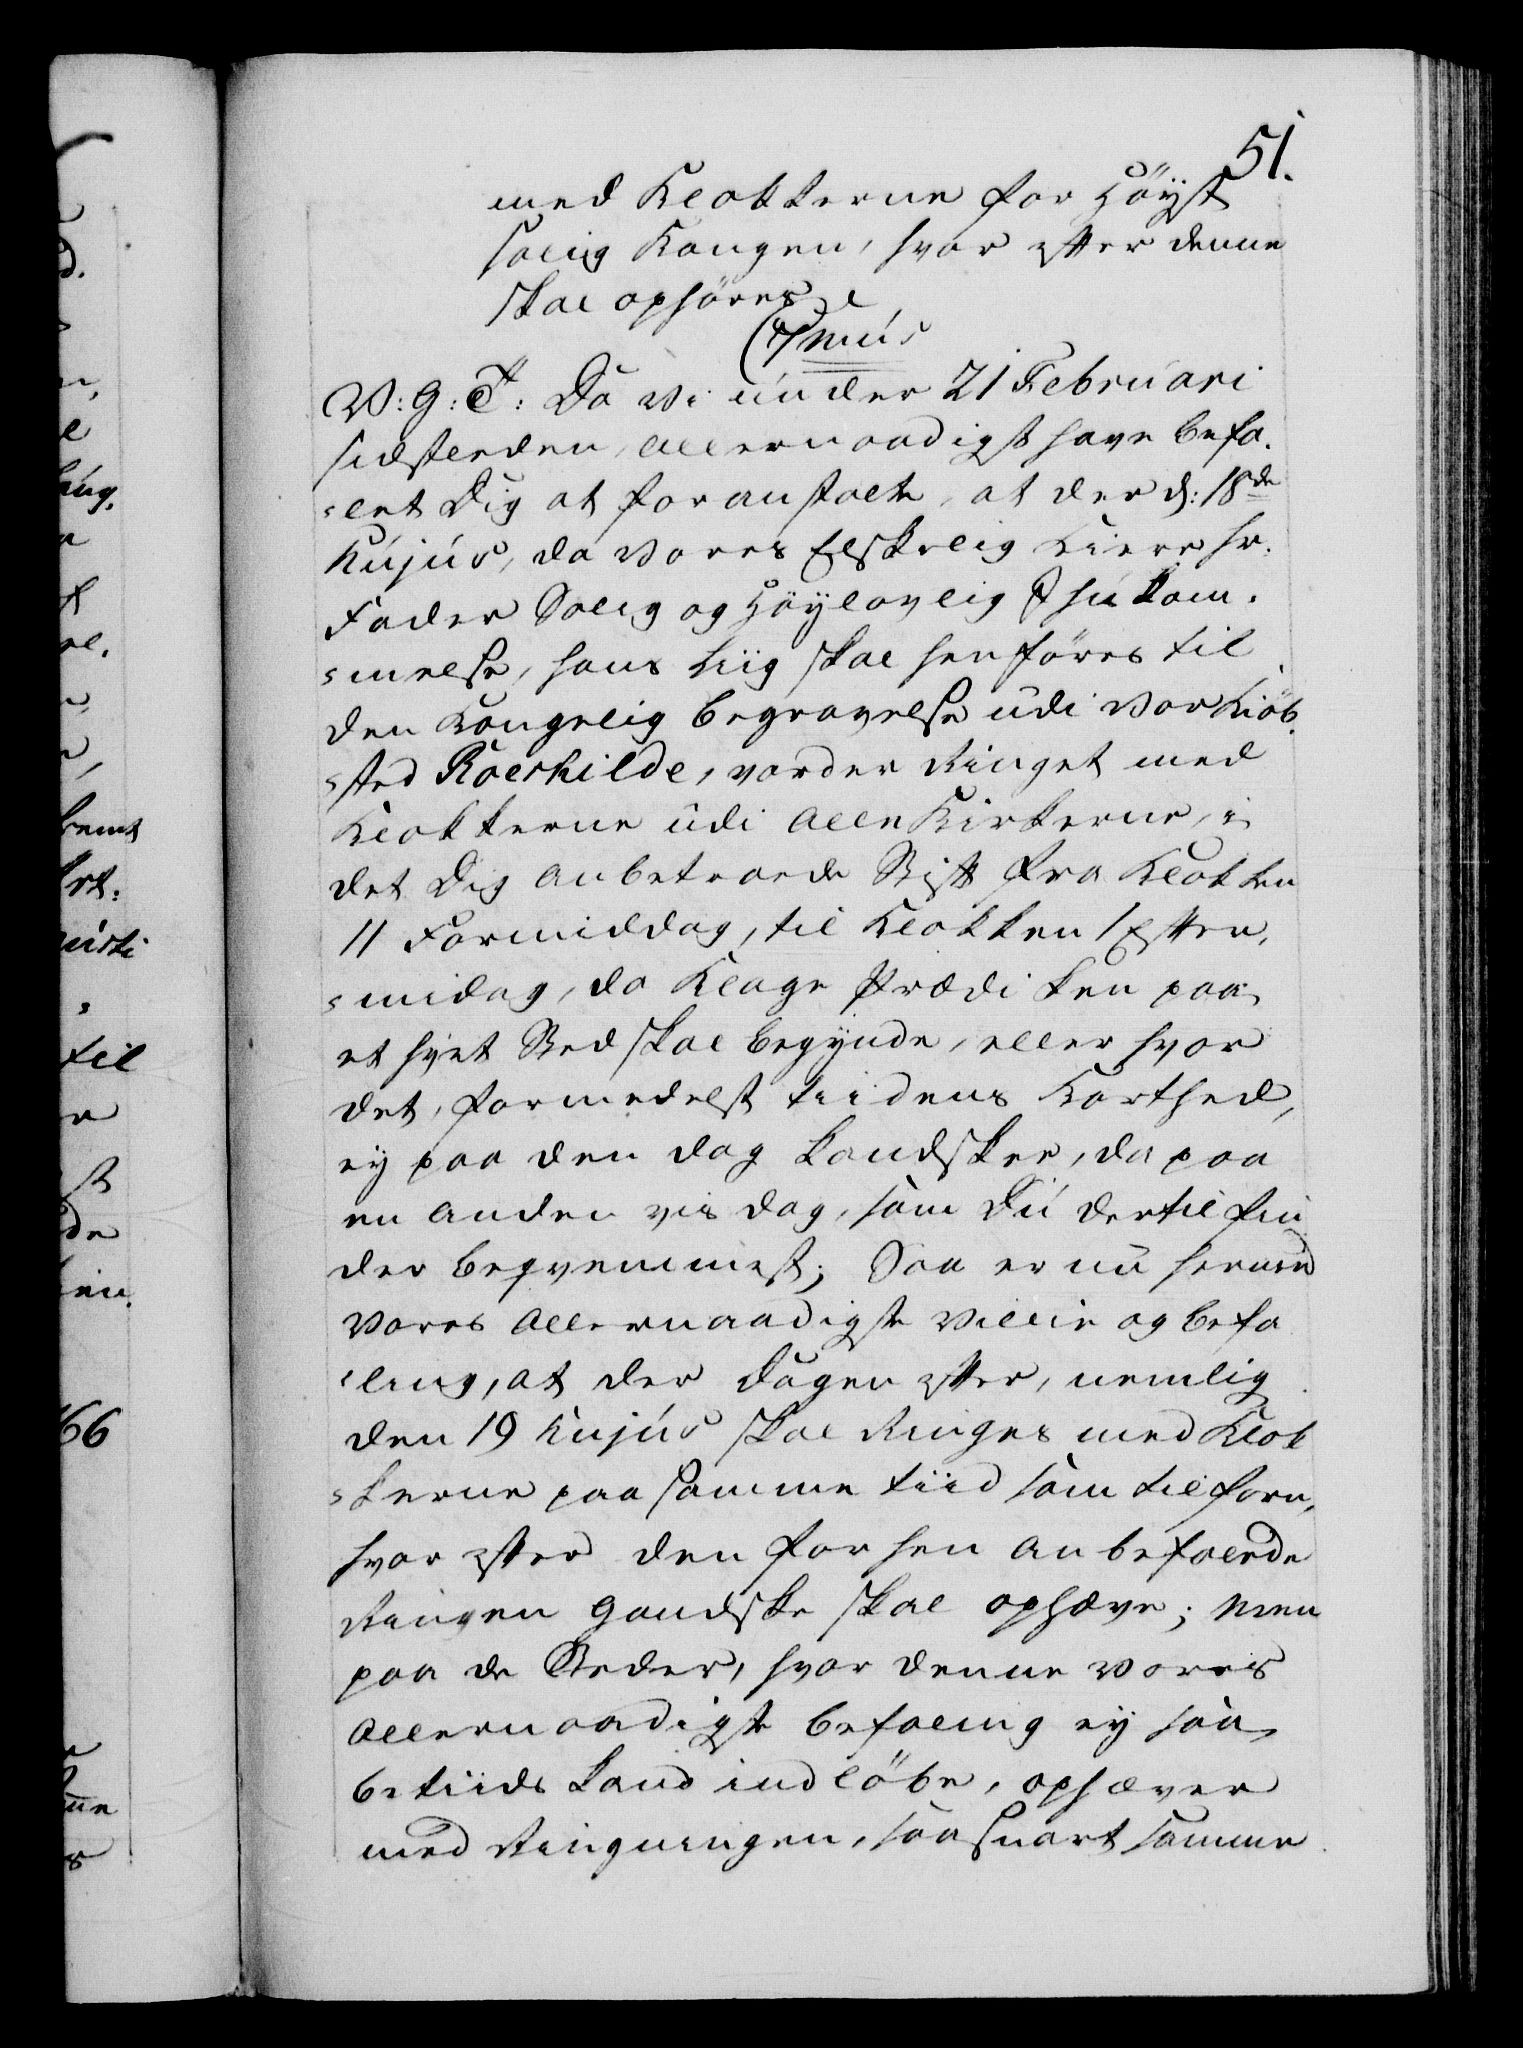 51.
med Klokkerne for Höyst
salig Kongen, hvor efter denne
skal ophöres
V: G: T: Da Vi under 21 Februari
sidstleden, allernaadigst have befa-
=let Dig at foranstalte, at der d: 18de
hujus, da Vores Elskelig Kiere Hr.
Fader Salig og Höylovlig Ihukom-
=melse, hans Liig skal henföres til
den Kongelig Begravelse udi Vor Kiöb-
=sted Roeskilde, vorder Ringet med
Klokkerne udi alle Kirkerne, i
det Dig anbetroede Stift fra Klokken
11 Formiddag, til Klokken 1 Efter-
=midag, da Klage Prædiken paa
et hvert Sted skal begynde, eller hvor
det, formedelst tiidens Korthed,
ey paa den dag kand skee, da paa
en anden vis dag, som Du dertil fin
der beqvemmest; Saa er nu herved
Vores allernaadigste Villie og befa
=ling, at der Dagen efter, nemlig
den 19 hujus skal Ringes med Klok
=kerne paa samme tiid som tilforn,
hvor efter den forhen anbefalede
Ringen gandske skal ophæve; men
paa de Steder, hvor denne Vores
allernaadigste befaling ey saa
betiids kand indlöbe, ophæver
med Ringningen, saasnart samme